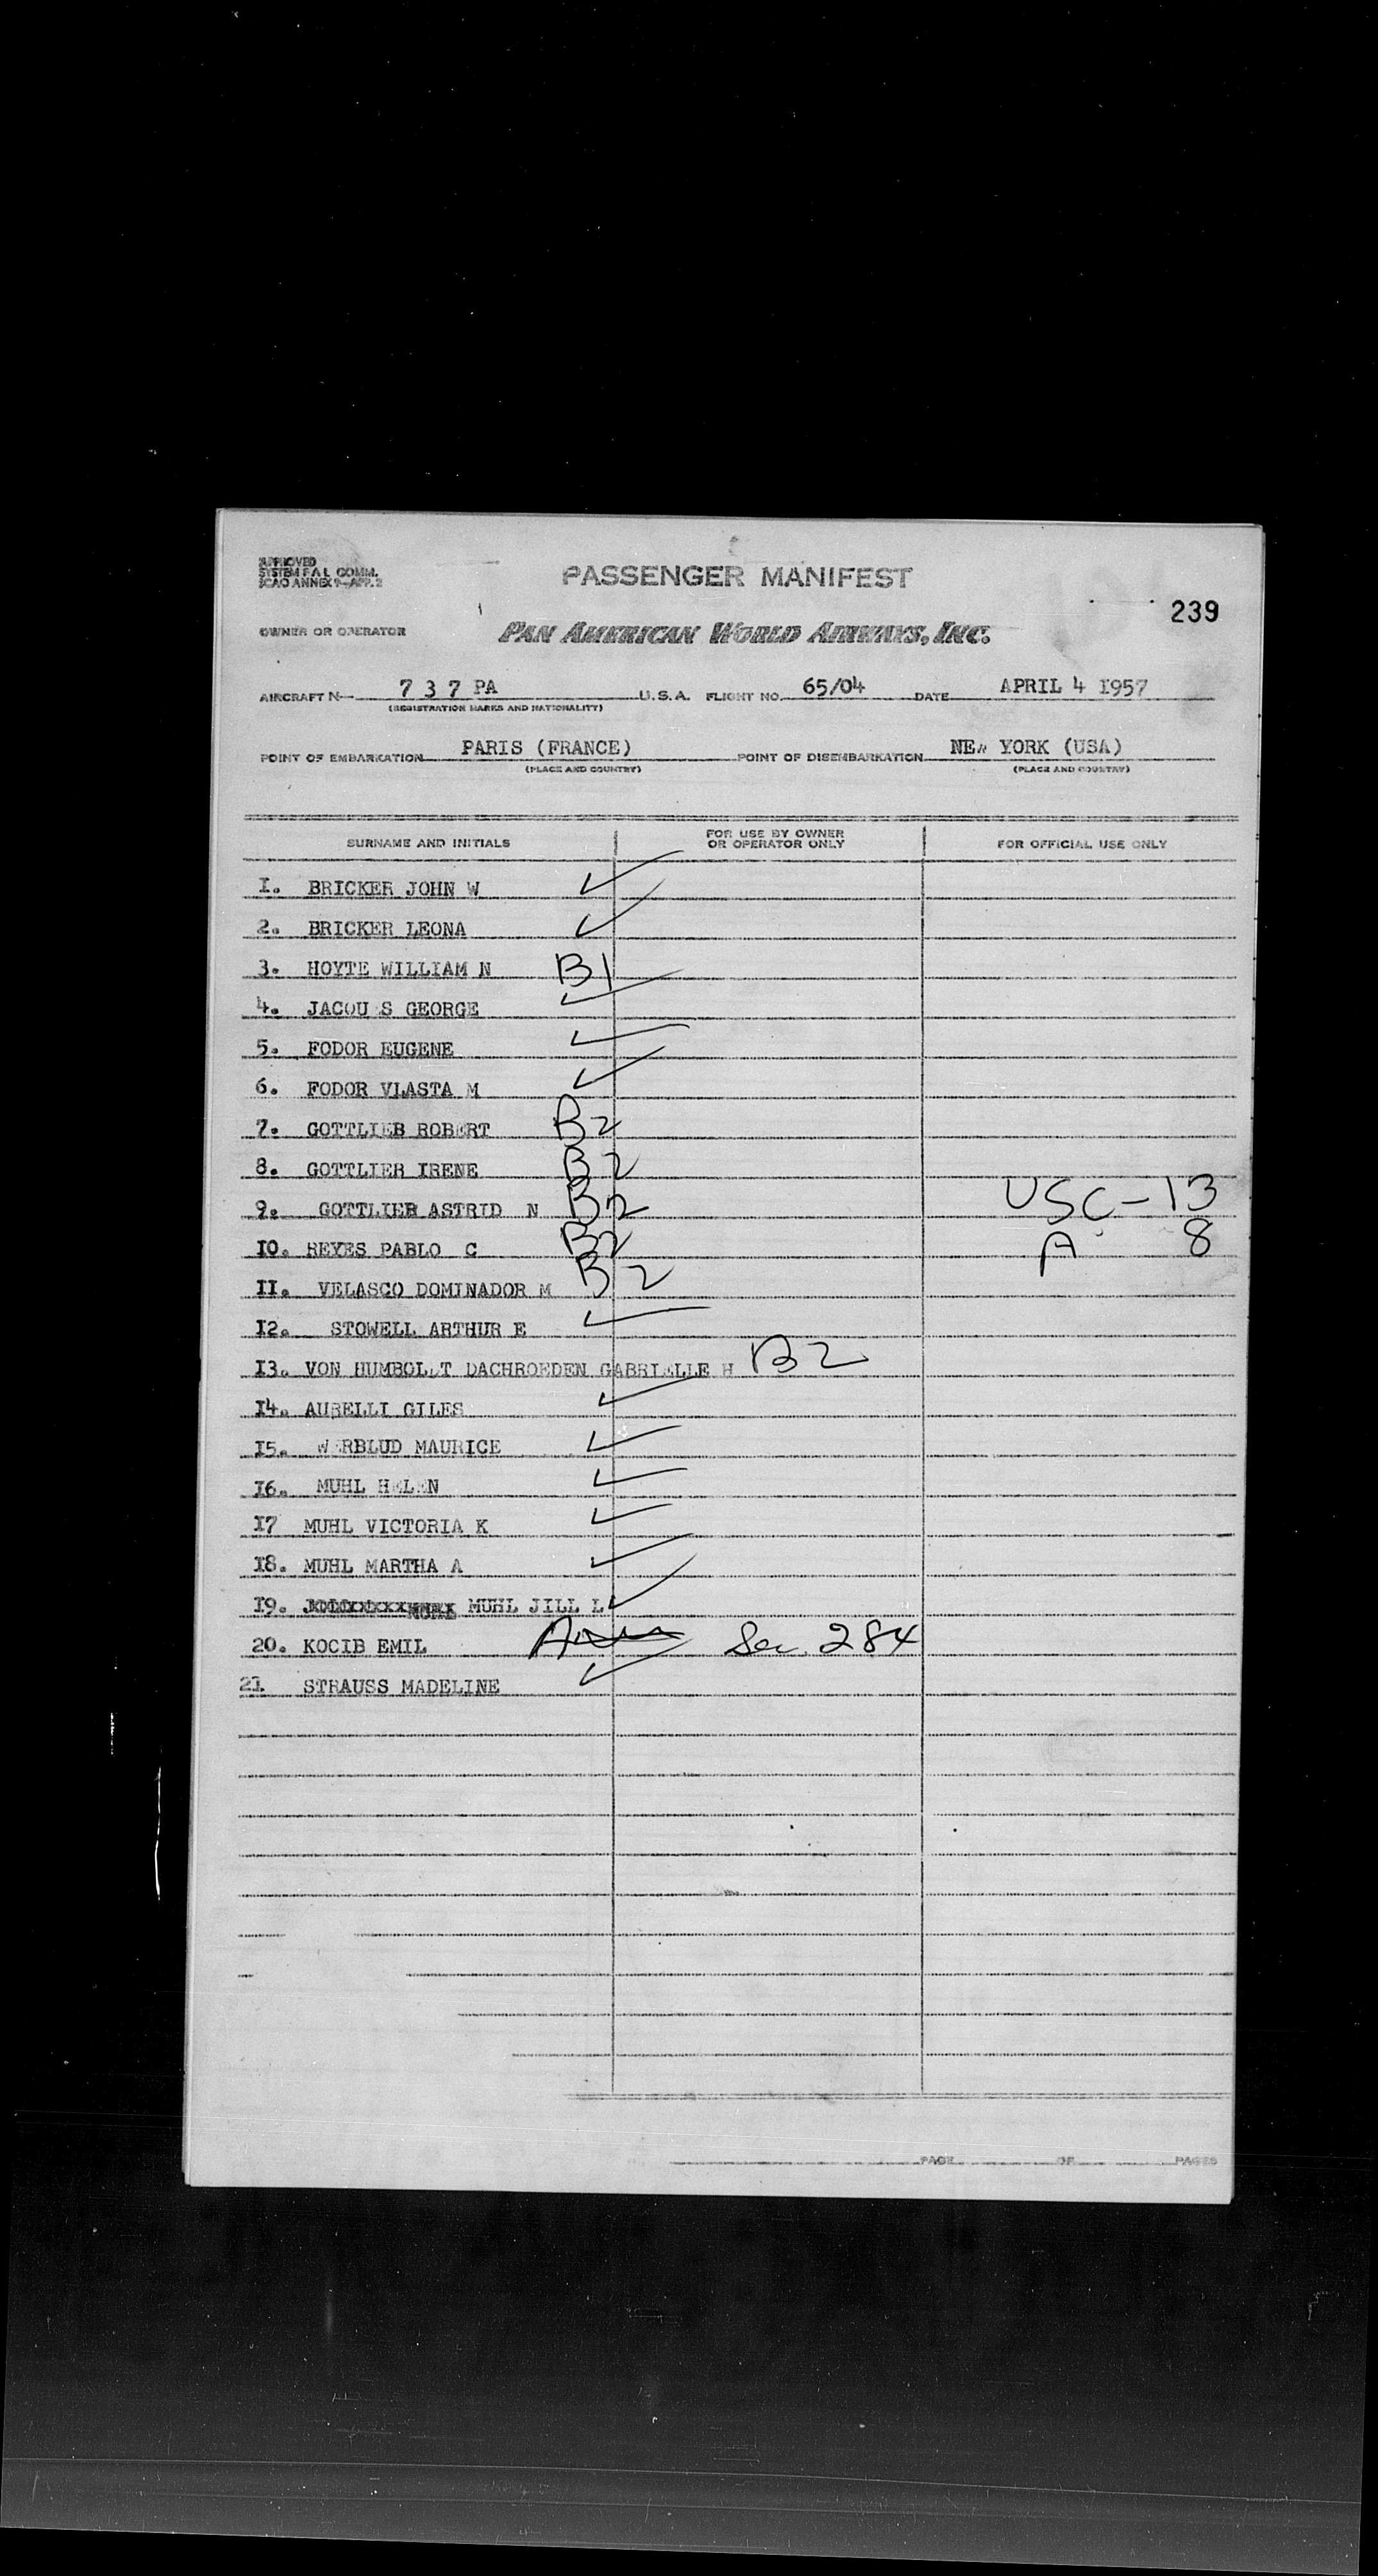 APPROVED
SYSTEM F.A.L. COMM.
ICAO ANNEX 9—APP. 2
PASSENGER MANIFEST
239
OWNER OR OPERATOR PAN AMERICAN WORLD AIRWAYS, INC.
AIRCRAFT N— 7 3 7 PA U.S.A. FLIGHT NO. 65/04 DATE APRIL 4 1957
(REGISTRATION MARKS AND NATIONALITY)
POINT OF EMBARKATION PARIS (FRANCE) POINT OF DISEMBARKATION NEW YORK (USA)
(PLACE AND COUNTRY) (PLACE AND COUNTRY)
SURNAME AND INITIALS FOR USE BY OWNER OR OPERATOR ONLY FOR OFFICIAL USE ONLY
1. BRICKER JOHN W ✓
2. BRICKER LEONA ✓
3. HOYTE WILLIAM N B1
4. JACQU S GEORGE ✓
5. FODOR EUGENE ✓
6. FODOR VLASTA M ✓
7. GOTTLIEB ROBERT B2
8. GOTTLIEB IRENE B2
9. GOTTLIEB ASTRID N B2 USC-13
10. REYES PABLO C B2 A 8
11. VELASCO DOMINADOR M B2
12. STOWELL ARTHUR E ✓
13. VON HUMBOLDT DACHROEDEN GABRIELLE H B2
14. AURELLI GILES ✓
15. WERBLUD MAURICE ✓
16. MUHL HELEN ✓
17 MUHL VICTORIA K ✓
18. MUHL MARTHA A ✓
19. MUHL JILL L ✓
20. KOCIB EMIL Sec. 284
21 STRAUSS MADELINE ✓
PAGE OF PAGES